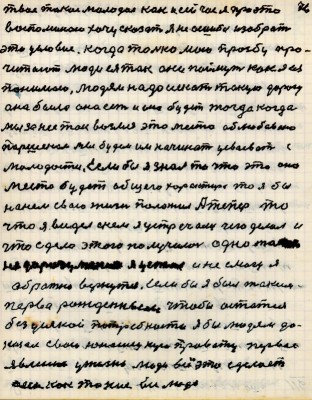 76
твая такая молодая как и сейчас я про это
воспоминаю хочу сказать я не сичибо изобрат
это условие. когда только мою прозбу про-
читают люди я так они поймут как я их
понимаю, людям надо искать такую дорогу
она была она есть и она будет тогда когда
мы за нее так возмем это место облюбовано
Паршеком мы будем им начинать цвитать с
молодости, Если бы я знал то что это оно
место будет общего характера то я бы
на нем свою жизнь положил А тепер то
что я видел с кем я устречался чего делал и
что с дело этого получилос одно
и не смогу я
обратно вернутся, Если бы я был таким
перва рожденным, чтобы остатся
без всякой потребности я бы людям до-
казал свою юношескую правоту первое
явление у жизнь люди всё это сделает
как это не вы люди